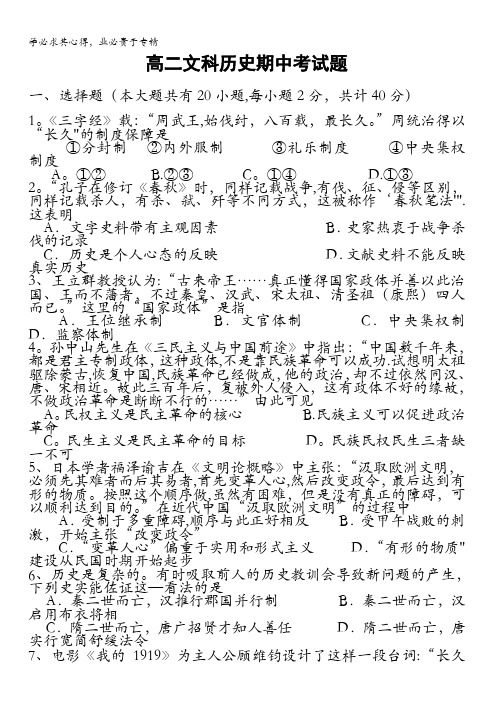 学必求其心得，业必贵于专精
高二文科历史期中考试题
一、选择题（本大题共有20小题,每小题2分，共计40分）
1。《三字经》载：“周武王,始伐纣，八百载，最长久。”周统治得以
“长久"的制度保障是
①分封制 ②内外服制 ③礼乐制度 ④中央集权
制度
A。①② B.②③ C。①④ D.①③
2。“孔子在修订《春秋》时，同样记载战争,有伐、征、侵等区别，
同样记载杀人，有杀、弑、歼等不同方式，这被称作‘春秋笔法'".
这表明
A．文字史料带有主观因素 B．史家热衷于战争杀
伐的记录
C．历史是个人心态的反映 D．文献史料不能反映
真实历史
3、王立群教授认为：“古来帝王……真正懂得国家政体并善以此治
国、王而不藩者。不过秦皇、汉武、宋太祖、清圣祖（康熙）四人
而已。”这里的“国家政体”是指
A．王位继承制 B．文官体制 C．中央集权制
D．监察体制
4。孙中山先生在《三民主义与中国前途》中指出：“中国数千年来，
都是君主专制政体，这种政体,不是靠民族革命可以成功.试想明太祖
驱除蒙古,恢复中国,民族革命已经做成，他的政治，却不过依然同汉、
唐、宋相近。故此三百年后，复被外人侵入，这有政体不好的缘故，
不做政治革命是断断不行的……”由此可见
A。民权主义是民主革命的核心 B.民族主义可以促进政治
革命
C。民生主义是民主革命的目标 D。民族民权民生三者缺
一不可
5、日本学者福泽谕吉在《文明论概略》中主张：“汲取欧洲文明，
必须先其难者而后其易者,首先变革人心,然后改变政令，最后达到有
形的物质。按照这个顺序做,虽然有困难，但是没有真正的障碍，可
以顺利达到目的。”在近代中国“汲取欧洲文明”的过程中
A．受制于多重障碍,顺序与此正好相反 B．受甲午战败的刺
激，开始主张“改变政令”
C．“变革人心”偏重于实用和形式主义 D．“有形的物质"
建设从民国时期开始起步
6、历史是复杂的。有时吸取前人的历史教训会导致新问题的产生，
下列史实能佐证这—看法的是
A．秦二世而亡，汉推行郡国并行制 B．秦二世而亡，汉
启用布衣将相
C．隋二世而亡，唐广招贤才知人善任 D．隋二世而亡，唐
实行宽简舒缓法令
7、电影《我的1919》为主人公顾维钧设计了这样一段台词：“长久